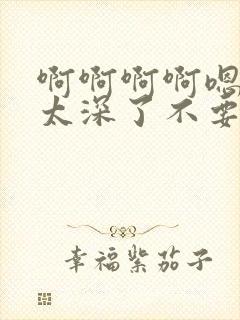 啊啊啊啊嗯
太深了不要
幸福紫茄子